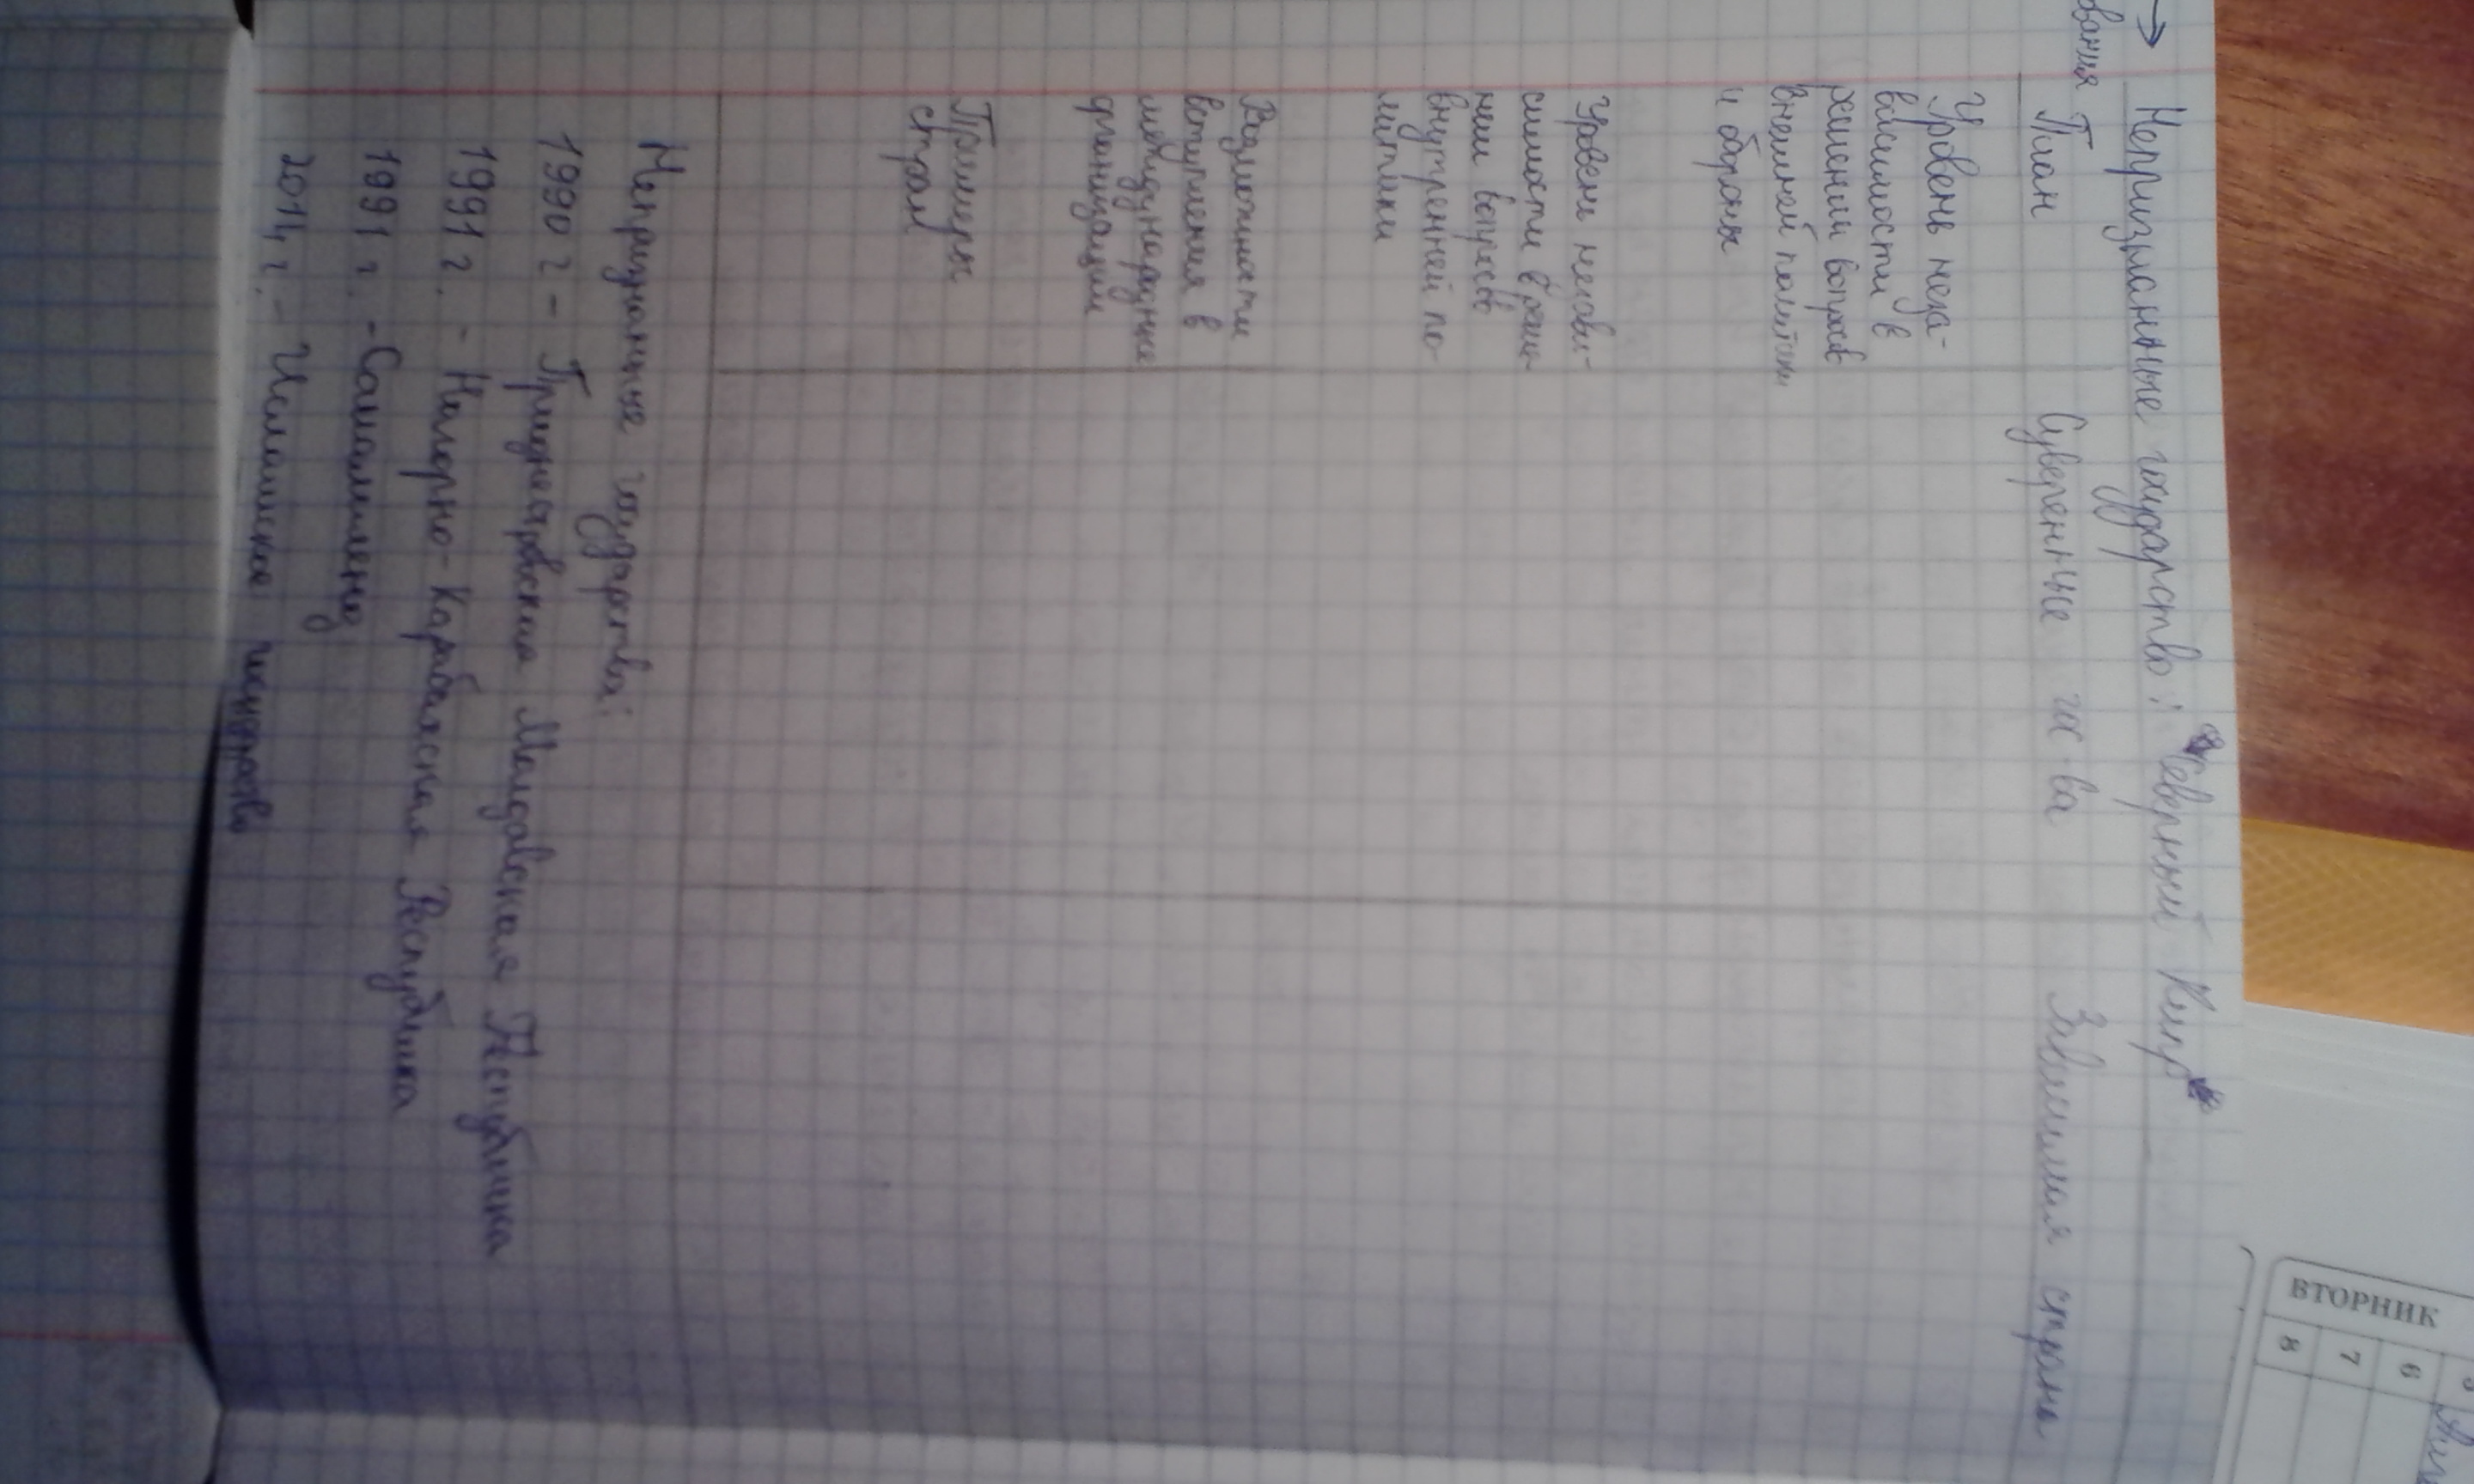 → Непризнанные государство: "Северный Кипр"
ования
План
Суверенные гос-ва
Зависимая страна
Уровень неза-
висимости в
решении вопросов
внешней политики
и обороны
Уровень незави-
симости в реше-
нии вопросов
внутренней по-
литики
Возможности
вступления в
международные
организации
Примеры
стран
Непризнанные государства:
1990 г - Приднестровская Молдавская Республика
1991 г. - Нагорно-Карабахская Республика
1991 г. - Сомалиленд
2014 г. - Исламское государство
ВТОРНИК
6
7
8